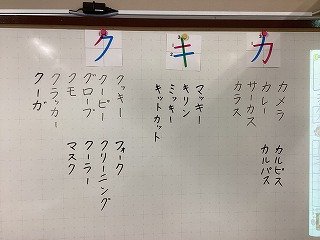 カ
カメラ カルピス
カレー カルパス
サーカス
カラス
キ
マッキー
キリン
ミッキー
キットカット
ク
クッキー フォーク
クーピー クリーニング
グローブ クーラー
クモ マスク
クラッカー
クーガ